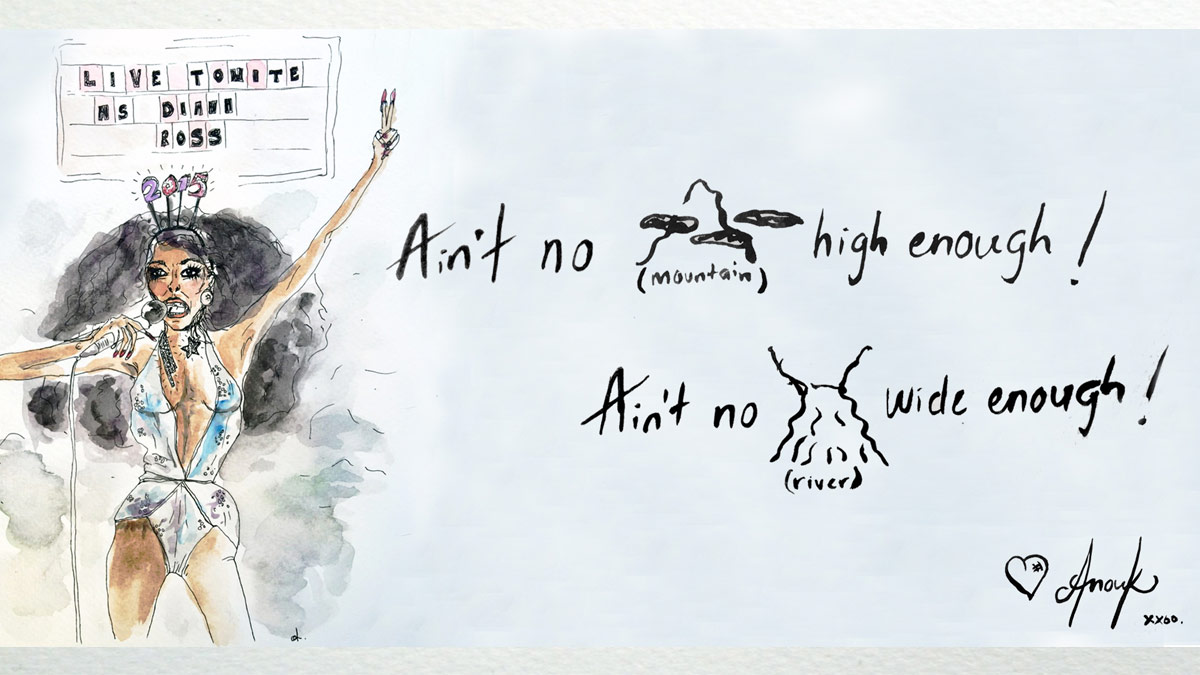 LIVE TONITE
AS DIANA
ROSS
2015
Ain't no (mountain) high enough!
Ain't no (river) wide enough!
Anouk
xxoo.